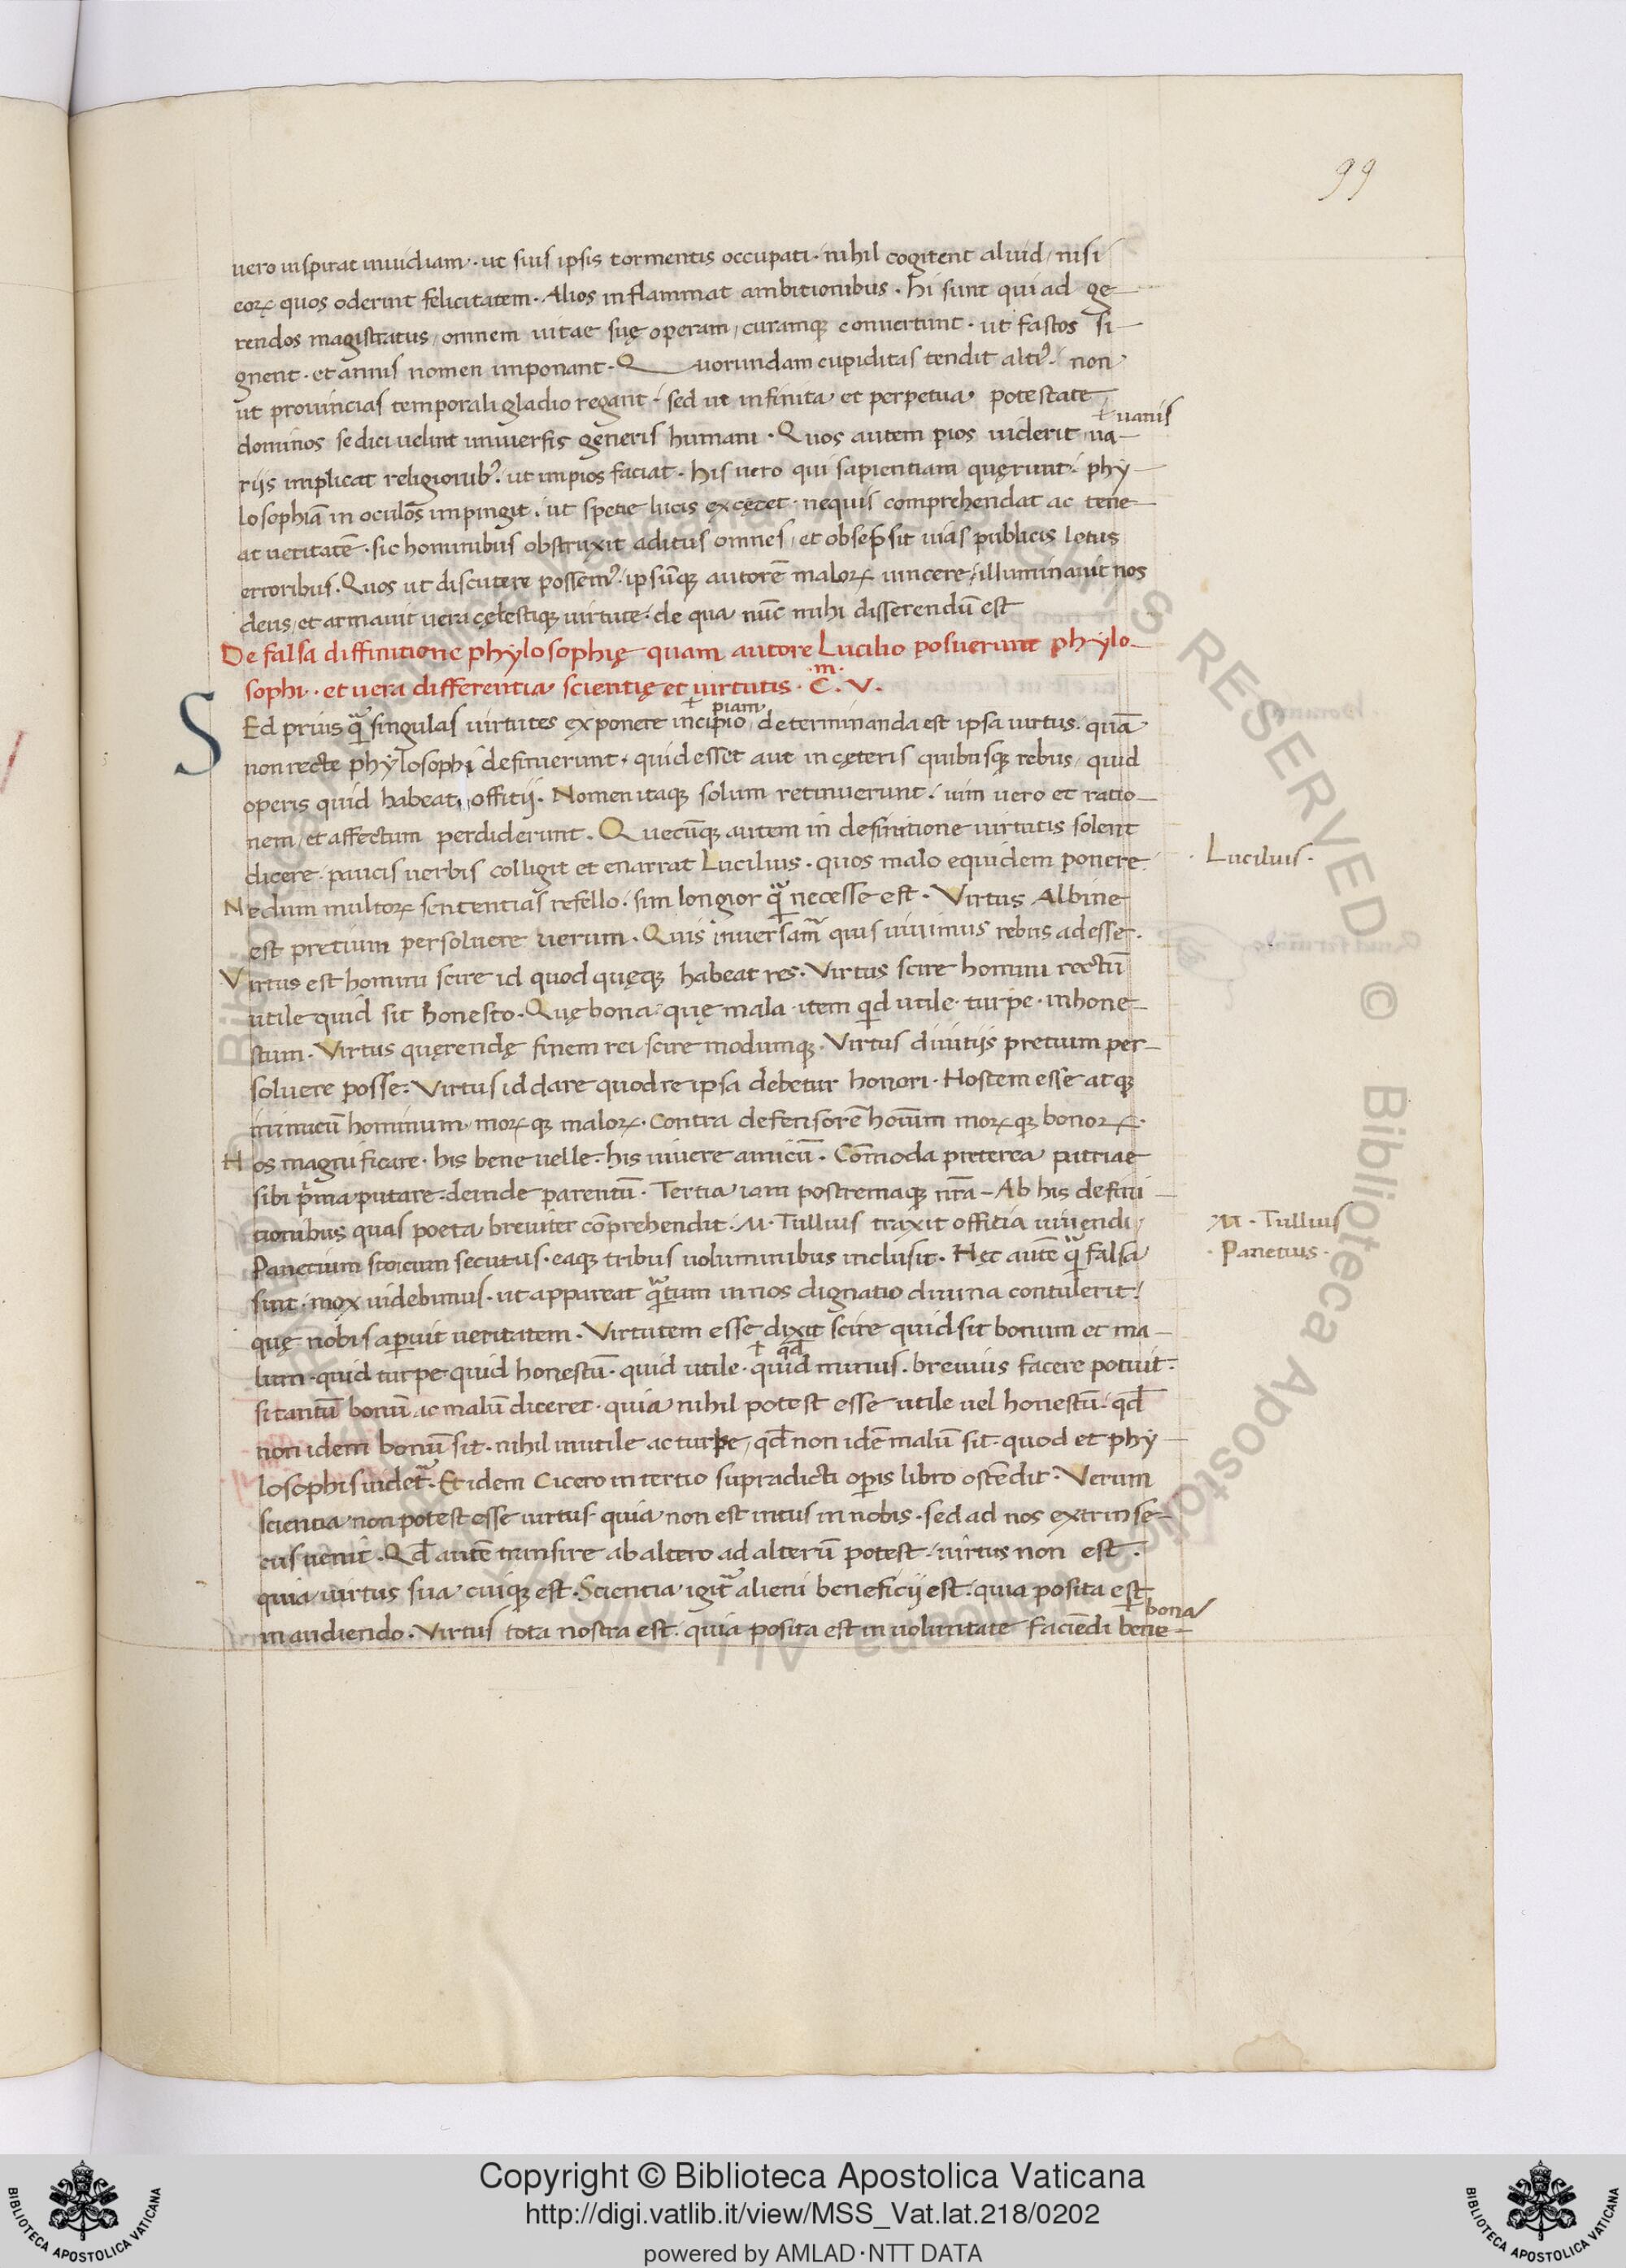 99
uero inspirat inuidiam · ut suis ipsis tormentis occupati · nihil cogitent aliud / nisi
eoꝝ quos oderint felicitatem · Alios inflammat ambitionibus · hi sunt qui ad ge-
rendos magistratus / omnem uitae suę operam / curamqꝫ conuertunt · ut fastos si-
gnent · et annis nomen imponant · Quorundam cupiditas tendit altiꝰ · non
ut prouincias temporali gladio regant · sed ut infinita et perpetua potestate
+ uanis
dominos se dici uelint uniuersis generis humani · Quos autem pios uiderit ua-
rijs implicat religionibꝰ · ut impios faciat · his uero qui sapientiam quęrunt · phy-
losophiā in oculos impingit · ut spetie lucis excęcet · nequis comprehendat ac tene-
at ueritatē · sic hominibus obstruxit aditus omnes / et obsepsit uias publicis letus
erroribus · Quos ut discutere possemꝰ · ipsūqꝫ autorē maloꝝ uincere / illuminauit nos
deus / et armauit uera cęlestiqꝫ uirtute · de qua nūc mihi disserendū est
De falsa diffinitione phylosophię quam autore Lucilio posuerunt phylo-
sophi · et uera differentia scientię et uirtutis · C.m V.
+ piam
Sed prius qᷓ singulas uirtutes exponere incipio / determinanda est ipsa uirtus · quā
non recte phylosophi definierunt · quid esset aut in cęteris quibusqꝫ rebus / quid
operis quid habeat offitij · Nomen itaqꝫ solum retinuerunt · uim uero et ratio-
nem / et affectum perdiderunt · Quecūqꝫ autem in definitione uirtutis solent
dicere · paucis uerbis colligit et enarrat Lucilius · quos malo equidem ponere ·
· Lucilius ·
Nedum multoꝝ sententias refello · sim longior qᷓ necesse est · Virtus Albine
est pretium persoluere uerum · Quis inuersam̄ quis uiuimus rebus adesse ·
Virtus est homini scire id quod quęqꝫ habeat res · Virtus scire homini rectū
utile quid sit honesto · Quę bona · quę mala · item qd utile · turpe · inhone-
stum · Virtus quęrendę finem rei scire modumqꝫ · Virtus diuitijs pretium per-
soluere posse · Virtus id dare quod re ipsa debetur honori · Hostem esse atqꝫ
inimicū hominum moꝝqꝫ maloꝝ · Contra defensorē hoīum moꝝqꝫ bonoꝝ ·
Hos magnificare · his bene uelle · his uiuere amicū · Cōmoda preterea patriae
sibi pᷓma putare · deinde parentū · Tertia iam postremaqꝫ nr̄a - Ab his defini-
tionibus quas poeta breuiter cōprehendit · M · Tullius traxit offitia uiuendi /
M · Tullius
Panetium stoicum secutus · eaqꝫ tribus uoluminibus inclusit · Hęc autē qᷓ falsa
· Panetius ·
sint · mox uidebimus · ut appareat qᷓtum in nos dignatio diuina contulerit /
quę nobis apuit ueritatem · Virtutem esse dixit scire quid sit bonum et ma-
+ qd
lum · quid turpe · quid honestū · quid utile · quid minus · breuius facere potuit ·
si tantū bonū ac malū diceret · quia nihil potest esse utile uel honestū · qd̄
non idem bonū sit · nihil inutile ac turpe / qd̄ non idē malū sit · quod et phy-
losophis uidetᷓ · Et idem Cicero in tertio supradicti opis libro ostēdit · Verum
scientia non potest esse uirtus · quia non est intus in nobis · sed ad nos extrinse-
cus uenit · Qd̄ autē transire ab altero ad alterū potest · uirtus non est ·
quia uirtus sua cuiqꝫ est · Scientia igitᷓ alieni beneficii est · quia posita est
+ bona
in audiendo · Virtus tota nostra est · quia posita est in uoluntate faciēdi bene-
Copyright © Biblioteca Apostolica Vaticana
http://digi.vatlib.it/view/MSS_Vat.lat.218/0202
powered by AMLAD·NTT DATA
BIBLIOTECA APOSTOLICA VATICANA
BIBLIOTECA APOSTOLICA VATICANA